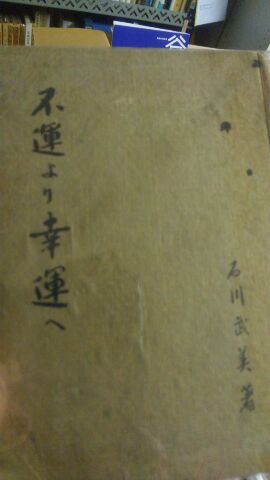 不運より幸運へ
石川武美著
谷